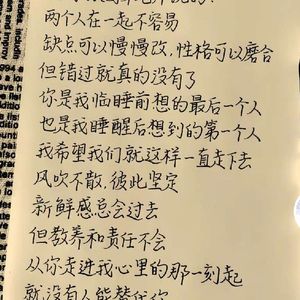 两个人在一起不容易
缺点可以慢慢改，性格可以磨合
但错过就真的没有了
你是我临睡前想的最后一个人
也是我睡醒后想到的第一个人
我希望我们就这样一直走下去
风吹不散，彼此坚定
新鲜感总会过去
但教养和责任不会
从你走进我心里的那一刻起
就没有人能替代你